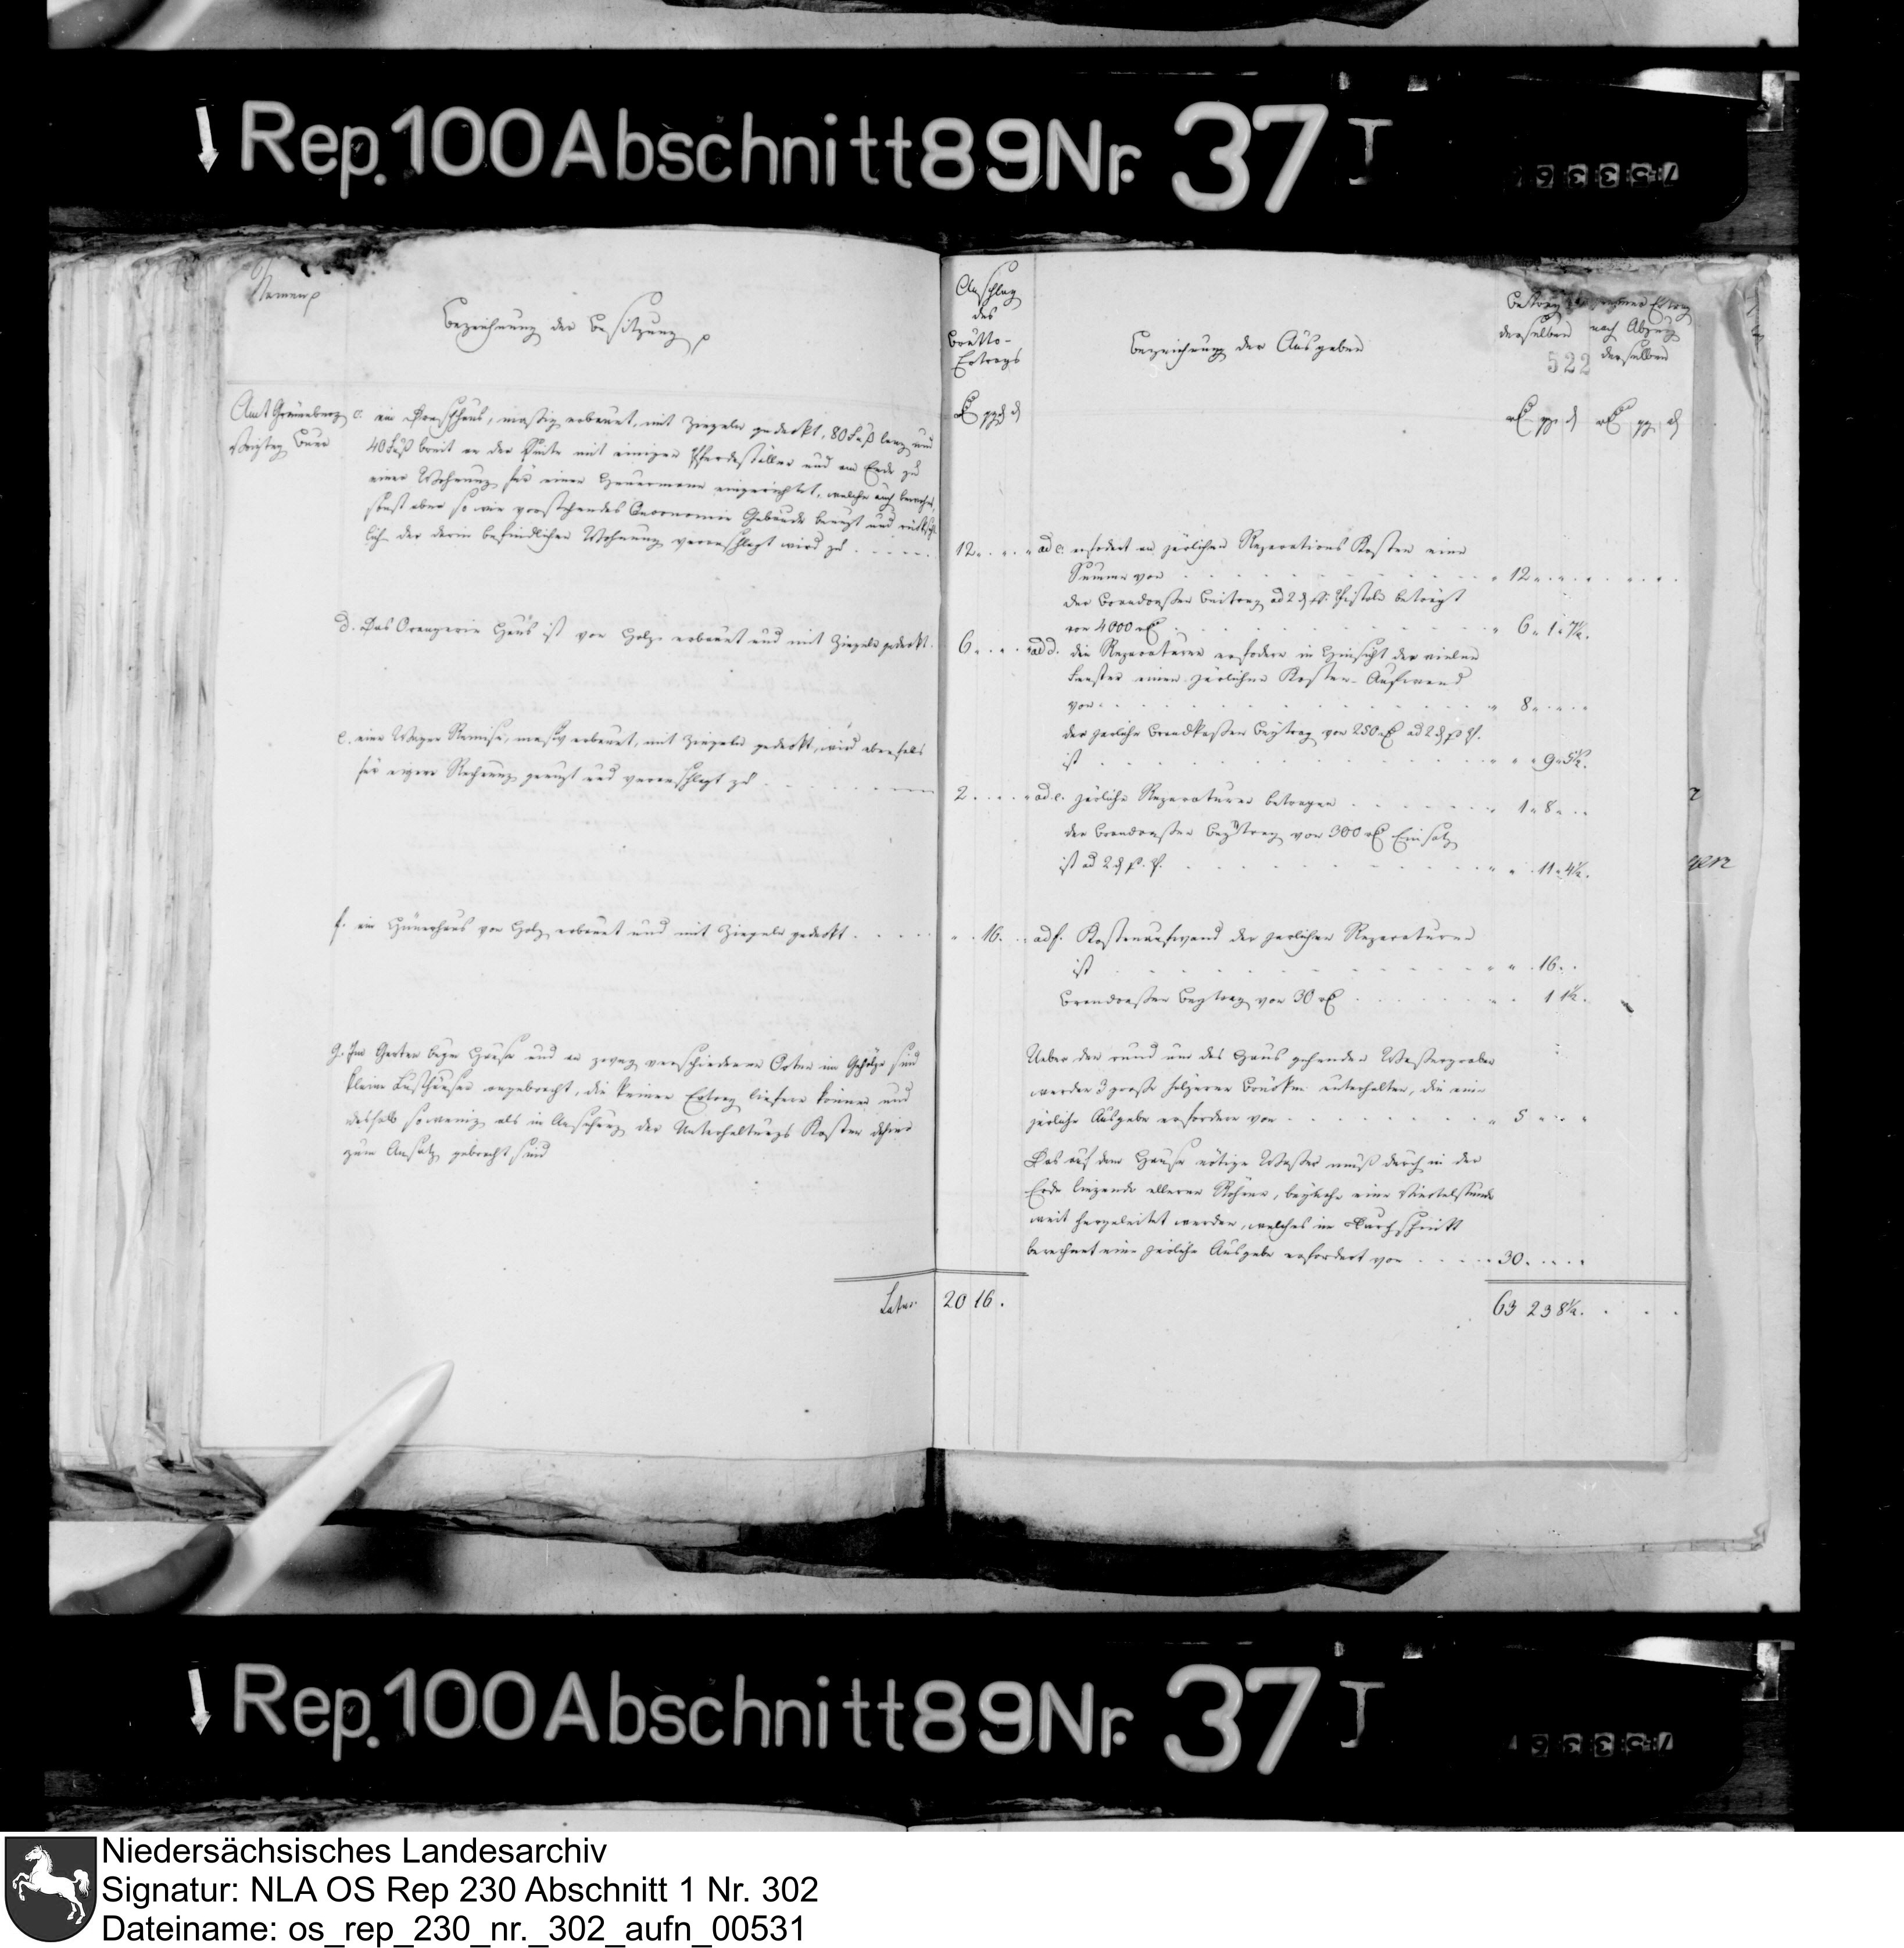 Rep. 100 Abschnitt 89 Nr. 37 I
Namen
Bezeichnung der Besitzung
Anschlag
des
Brutto-
Ertrags
Bezeichnung der Ausgaben
Betrag
derselben
reiner Ertrag
nach Abzug
derselben
522
Amt Grönenberg
Buer
c. ein Dreschhaus, massiv erbauet, mit Ziegeln gedeckt, 80 Fuß lang und
40 Fuß breit an der Seite mit einigen Pferdeställen und am Ende zu
einer Wohnung für einen Heuermann eingerichtet, welche auch
sonst aber so wie vorstehendes Oeconomie Gebäude benuzt und
der darin befindlichen Wohnung veranschlagt wird zu
12
ad c. erfodert an järlichen Reparations Kosten eine
Summe von
12
der Brandcassen Beitrag ad 2 Pistole beträgt
von 4000
6 1 7½
d. Das Orangerie Haus ist von Holz erbauet und mit Ziegeln gedeckt
6
ad d. die Reparaturen erfodern in Hinsicht der vielen
Fenster einen järlichen Kosten-Aufwand
von
8
der jarliche Brandkassen Beytrag von 250 ad 2
ist
9 5½
e. eine Wagen Remise, massiv erbauet, mit Ziegeln gedeckt, wird ebenfals
für eigene Rechnung genuzt und veranschlagt zu
2
ad e. järliche Reparaturen betragen
1 8
der Brandcassen Beytrag von 300 Einsatz
ist ad 2
11 4½
f. ein Hünerhaus von Holz erbauet und mit Ziegeln gedeckt
16
ad f. Kostenaufwand der jarlichen Reparaturen
ist
16
Brandcassen Beytrag von 30
1 1½
g. Im Garten beym Hause und an zwey verschiedenen Orten im Gehölze sind
kleine Lusthäuser angebracht, die keinen Ertrag liefern können und
deshalb sowenig als in Ansehung der Unterhaltungs Kosten
zum Ansatz gebracht sind
Ueber den rund um das Haus gehenden Wassergraben
werden 3 große hölzerne Brücken unterhalten, die eine
järliche Ausgabe erfordern von
5
Das auf dem Hause nötige Wasser muß durch in der
Erde liegende ellerne Röhren, beynahe eine Viertelstunde
weit hergeleitet werden, welches im Durchschnitt
berechnet eine jarliche Ausgabe erfordert von
30
Latus
20 16
63 23 8½
Rep. 100 Abschnitt 89 Nr. 37 I
Niedersächsisches Landesarchiv
Signatur: NLA OS Rep 230 Abschnitt 1 Nr. 302
Dateiname: os_rep_230_nr._302_aufn_00531